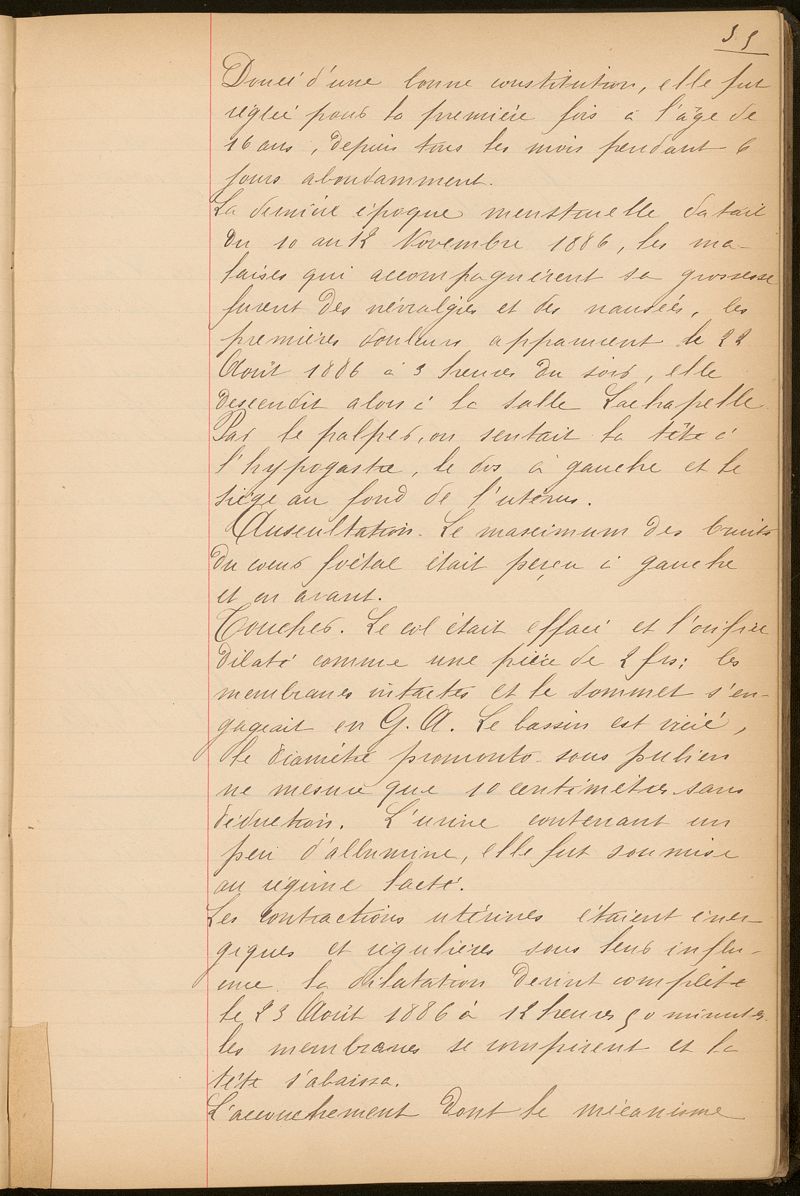 35
Doueé d'une bonne constitution, elle fut
réglée pour la première fois à l'âge de
16 ans, depuis tous les mois pendant 6
jours abondamment.
La dernière époque menstruelle datait
du 10 au 12 Novembre 1886, les ma-
laises qui accompagnèrent sa grossesse
furent des névralgies et des nausées, les
premières douleurs apparurent le 22
Août 1886 à 3 heures du soir, elle
descendit alors à la salle Lachapelle.
Par le palper, on sentait la tête à
l'hypogastre, le dos à gauche et le
siège au fond de l'utérus.
Auscultation. Le maximum des bruits
du coeur foetal était perçu à gauche
et en avant.
Toucher. Le col était effacé et l'orifice
dilaté comme une pièce de 2 frs; les
membranes intactes et le sommet s'en-
gageait en G. A. Le bassin est vicié,
le diamètre promonto-sous pubien
ne mesure que 10 centimètres sans
déduction. L'urine contenant un
peu d'albumine, elle fut soumise
au régime lacté.
Les contractions utérines étaient éner-
giques et régulières sous leur influ-
ence la dilatation devint complète
le 23 Août 1886 à 12 heures 50 minutes
les membranes se rompirent et la
tête s'abaissa.
L'accouchement dont le mécanisme